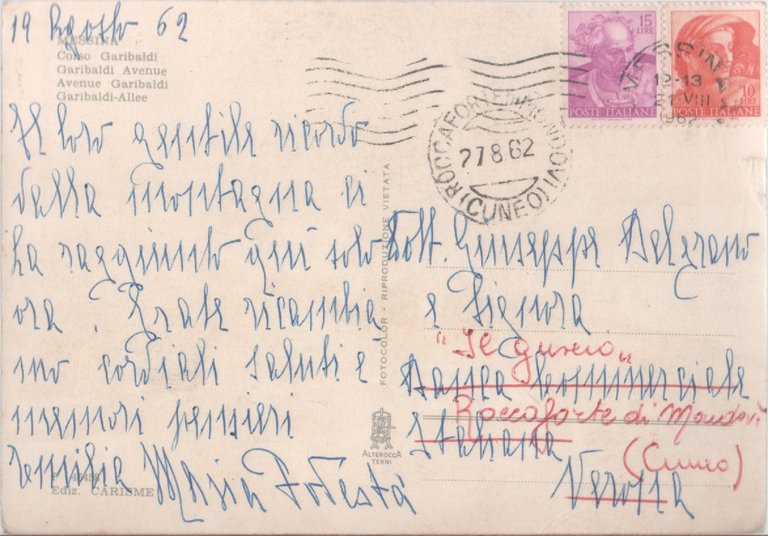 19 Agosto 62
MESSINA
Corso Garibaldi
Garibaldi Avenue
Avenue Garibaldi
Garibaldi-Allee
Il loro gentile ricordo
della montagna ci
ha raggiunto qui solo
ora. Grate ricambia
mo cordiali saluti e
memori pensieri
Maria Podestà
Ediz. CARISME
FOTOCOLOR - RIPRODUZIONE VIETATA
ALTEROCCA
TERNI
15
LIRE
POSTE ITALIANE
10
LIRE
POSTE ITALIANE
MESSINA
12-13
21·VIII
1962
ROCCAFORTE MONDOVI
27 8 62
(CUNEO)
Dott. Giuseppe Belgrano
e Signora
"Il guscio"
Banca Commerciale
Roccaforte di Mondovì
Italiana
(Cuneo)
Verona